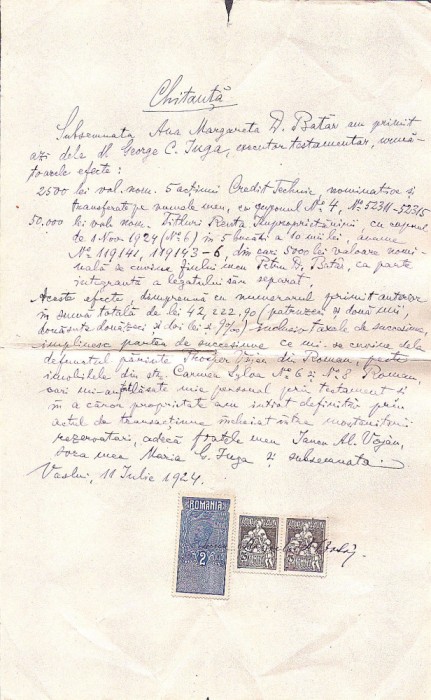 Chitanţă
Subsemnata Ana Margareta D. Batăr am primit
azi dela Dl. George C. Iuga, executor testamentar, urmă-
toarele efecte:
2500 lei val. nom. 5 acţiuni Credit Technic, nominative şi
transferate pe numele meu, cu cuponul No 4, No 52311-52315
50.000 lei valo. nom. Titluri Renta Improprietăririi cu cuponul
de 1 Nov. 1924 (No 6) în 5 bucăţi a 10 mii lei, anume
No 119141, 119143-6, din cari 5000 lei valoare nomi-
nală se cuvine fiului meu Petru D. Batăr, ca parte
integrantă a legatului său separat.
Aceste efecte, dimpreună cu numerarul primit anterior
în sumă totală de lei 42,222.90 (patruzeci şi două mii,
două sute douăzeci şi doi lei şi 90/00) exclusiv taxele de succesiune,
împlinesc partea de succesiune ce mi-se cuvine dela
defunctul părinte Vojan din Roman,
imobilele din str. Carmen Sylva No 6 şi No 8 Roman,
cari mi-au mie personal prin testament şi
în a căror proprietate am intrat definitiv prin
actul de transacţiune încheiat între moştenitorii
rezervatari, adecă fratele meu Iancu Al. Vojan,
sora mea Maria C. Iuga şi subsemnata.
Vaslui, 11 Iulie 1924.
ROMANIA
2